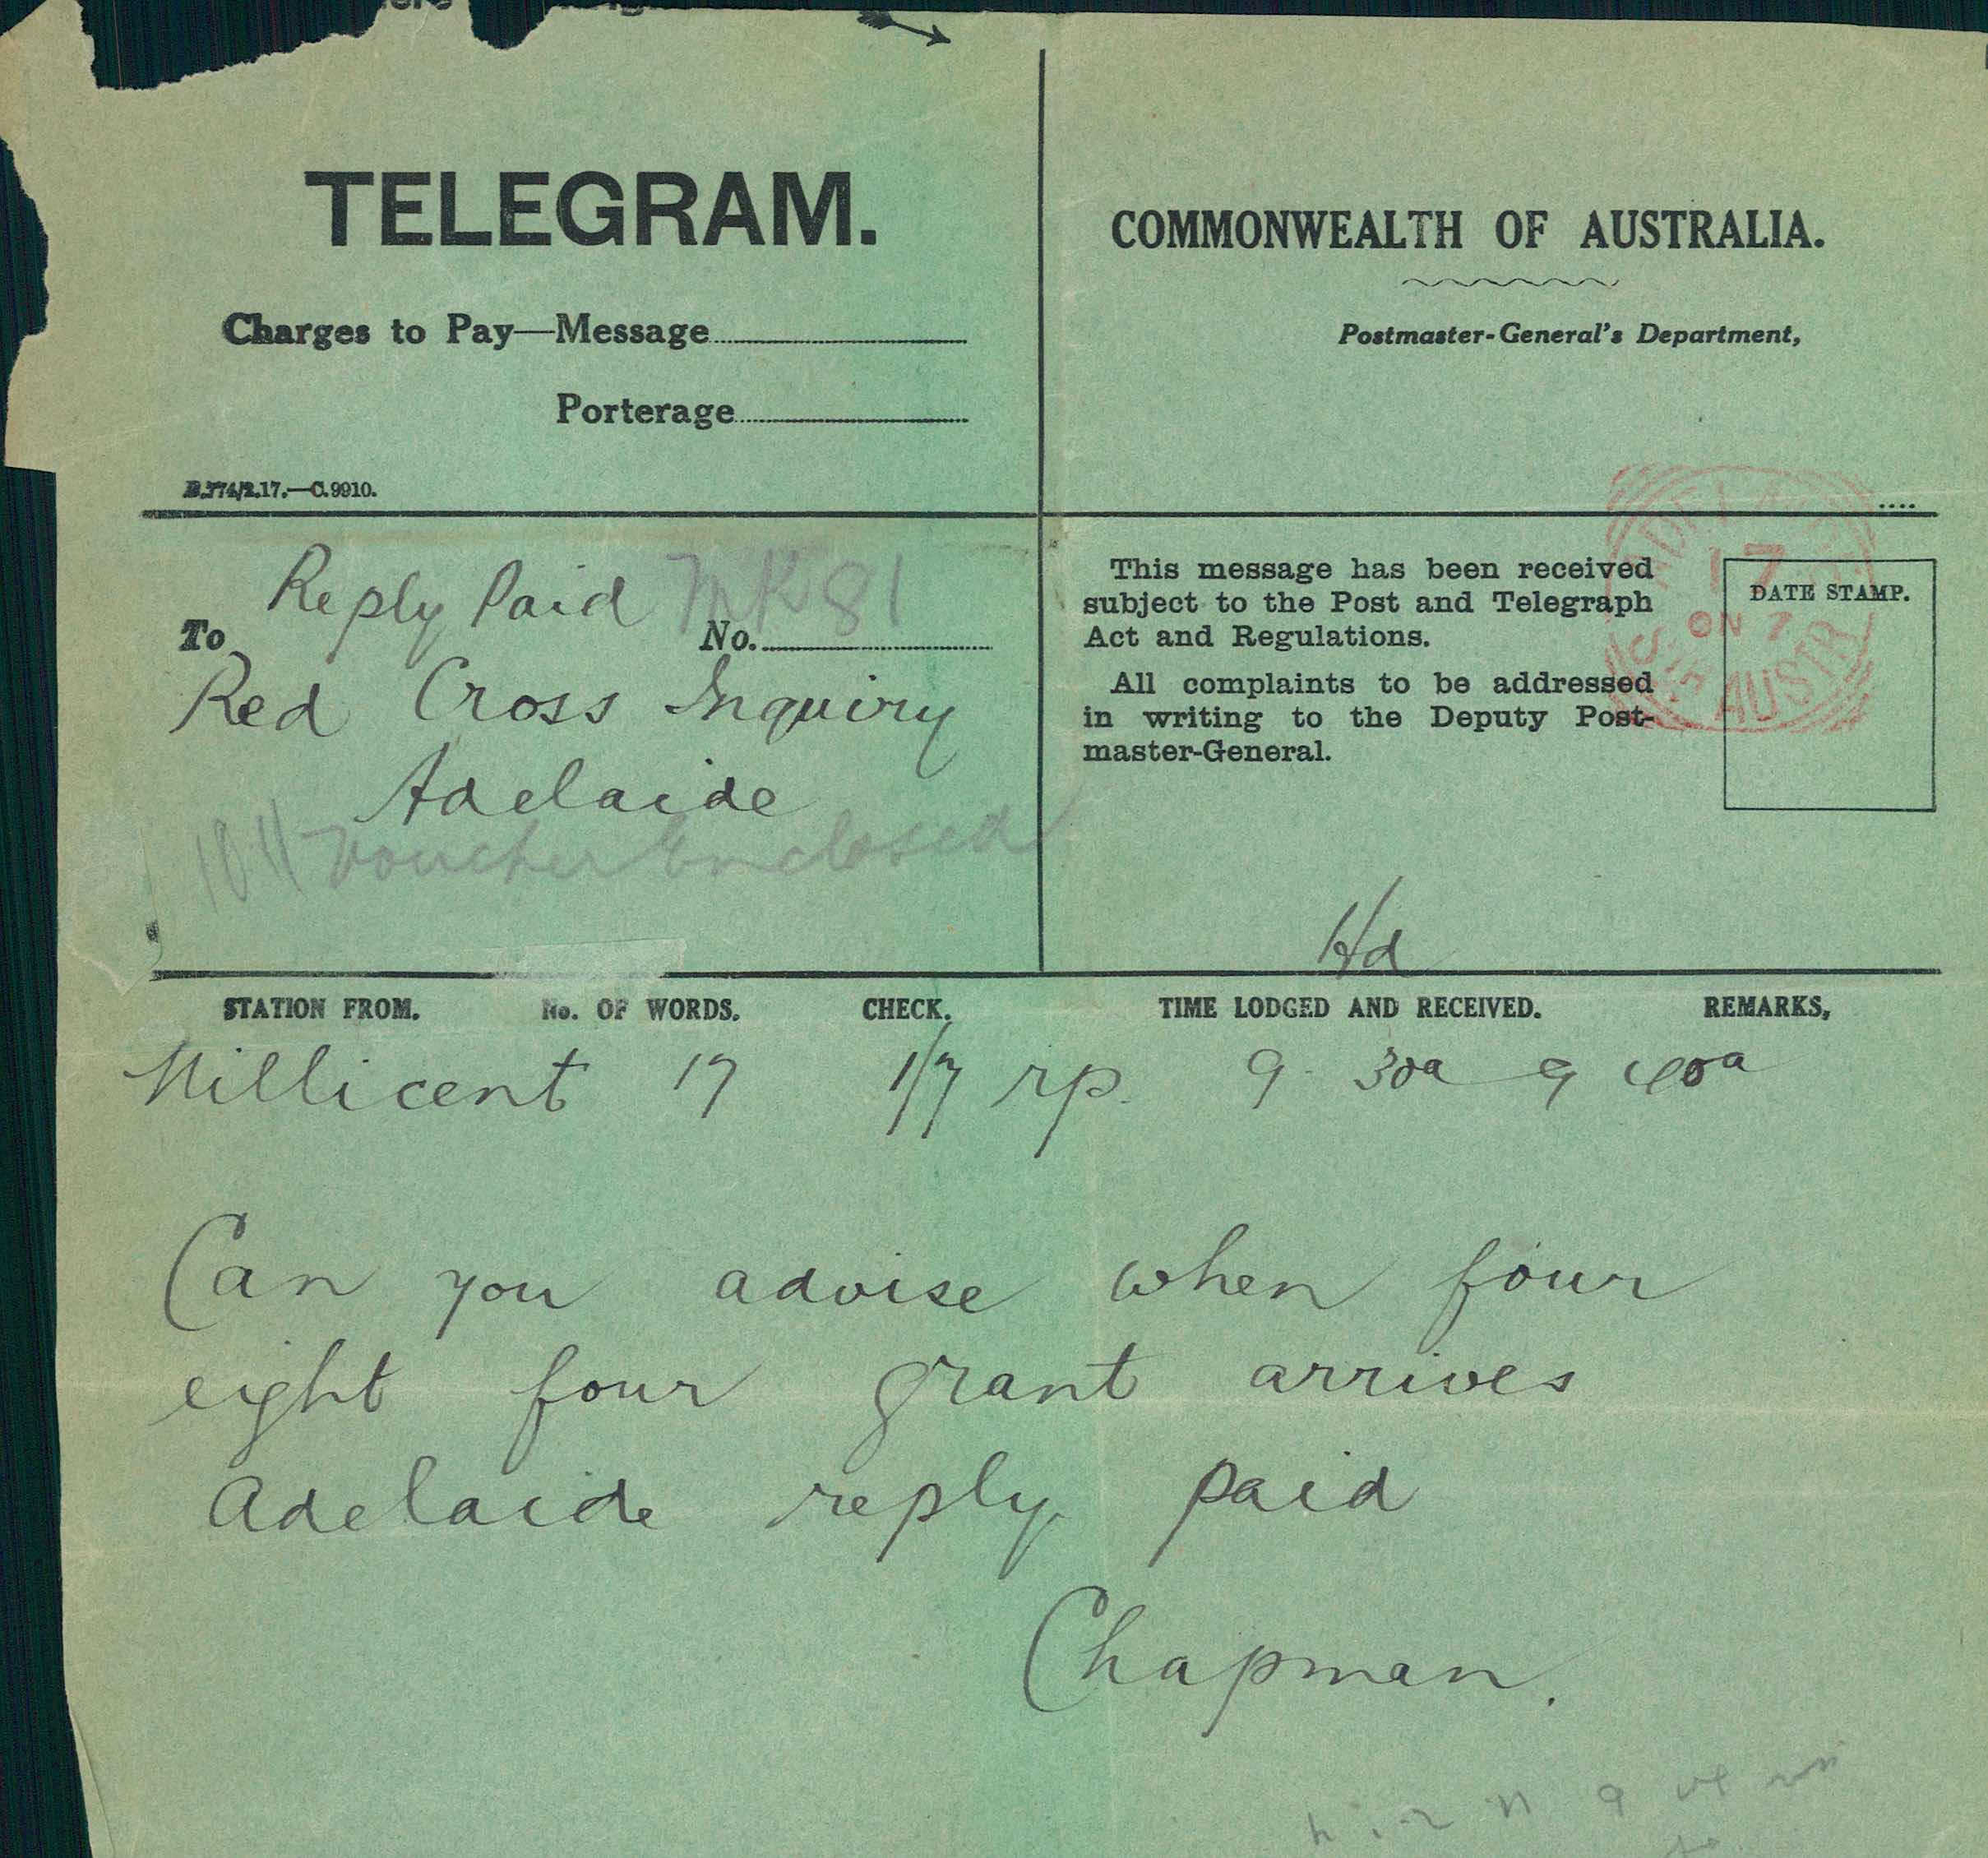 TELEGRAM.
Charges to Pay—Message
Porterage
B.774/2.17.—C.9910.
COMMONWEALTH OF AUSTRALIA.
Postmaster-General's Department,
Reply Paid
To
No.
81
Red Cross Inquiry
Adelaide
Voucher Enclosed
This message has been received
subject to the Post and Telegraph
Act and Regulations.
All complaints to be addressed
in writing to the Deputy Post-
master-General.
DATE STAMP.
17
AUSTR
Hd
STATION FROM. No. OF WORDS. CHECK. TIME LODGED AND RECEIVED. REMARKS,
Millicent 17 1/7 rp. 9 30a 9 40a
Can you advise when four
eight four grant arrives
Adelaide reply paid
Chapman.